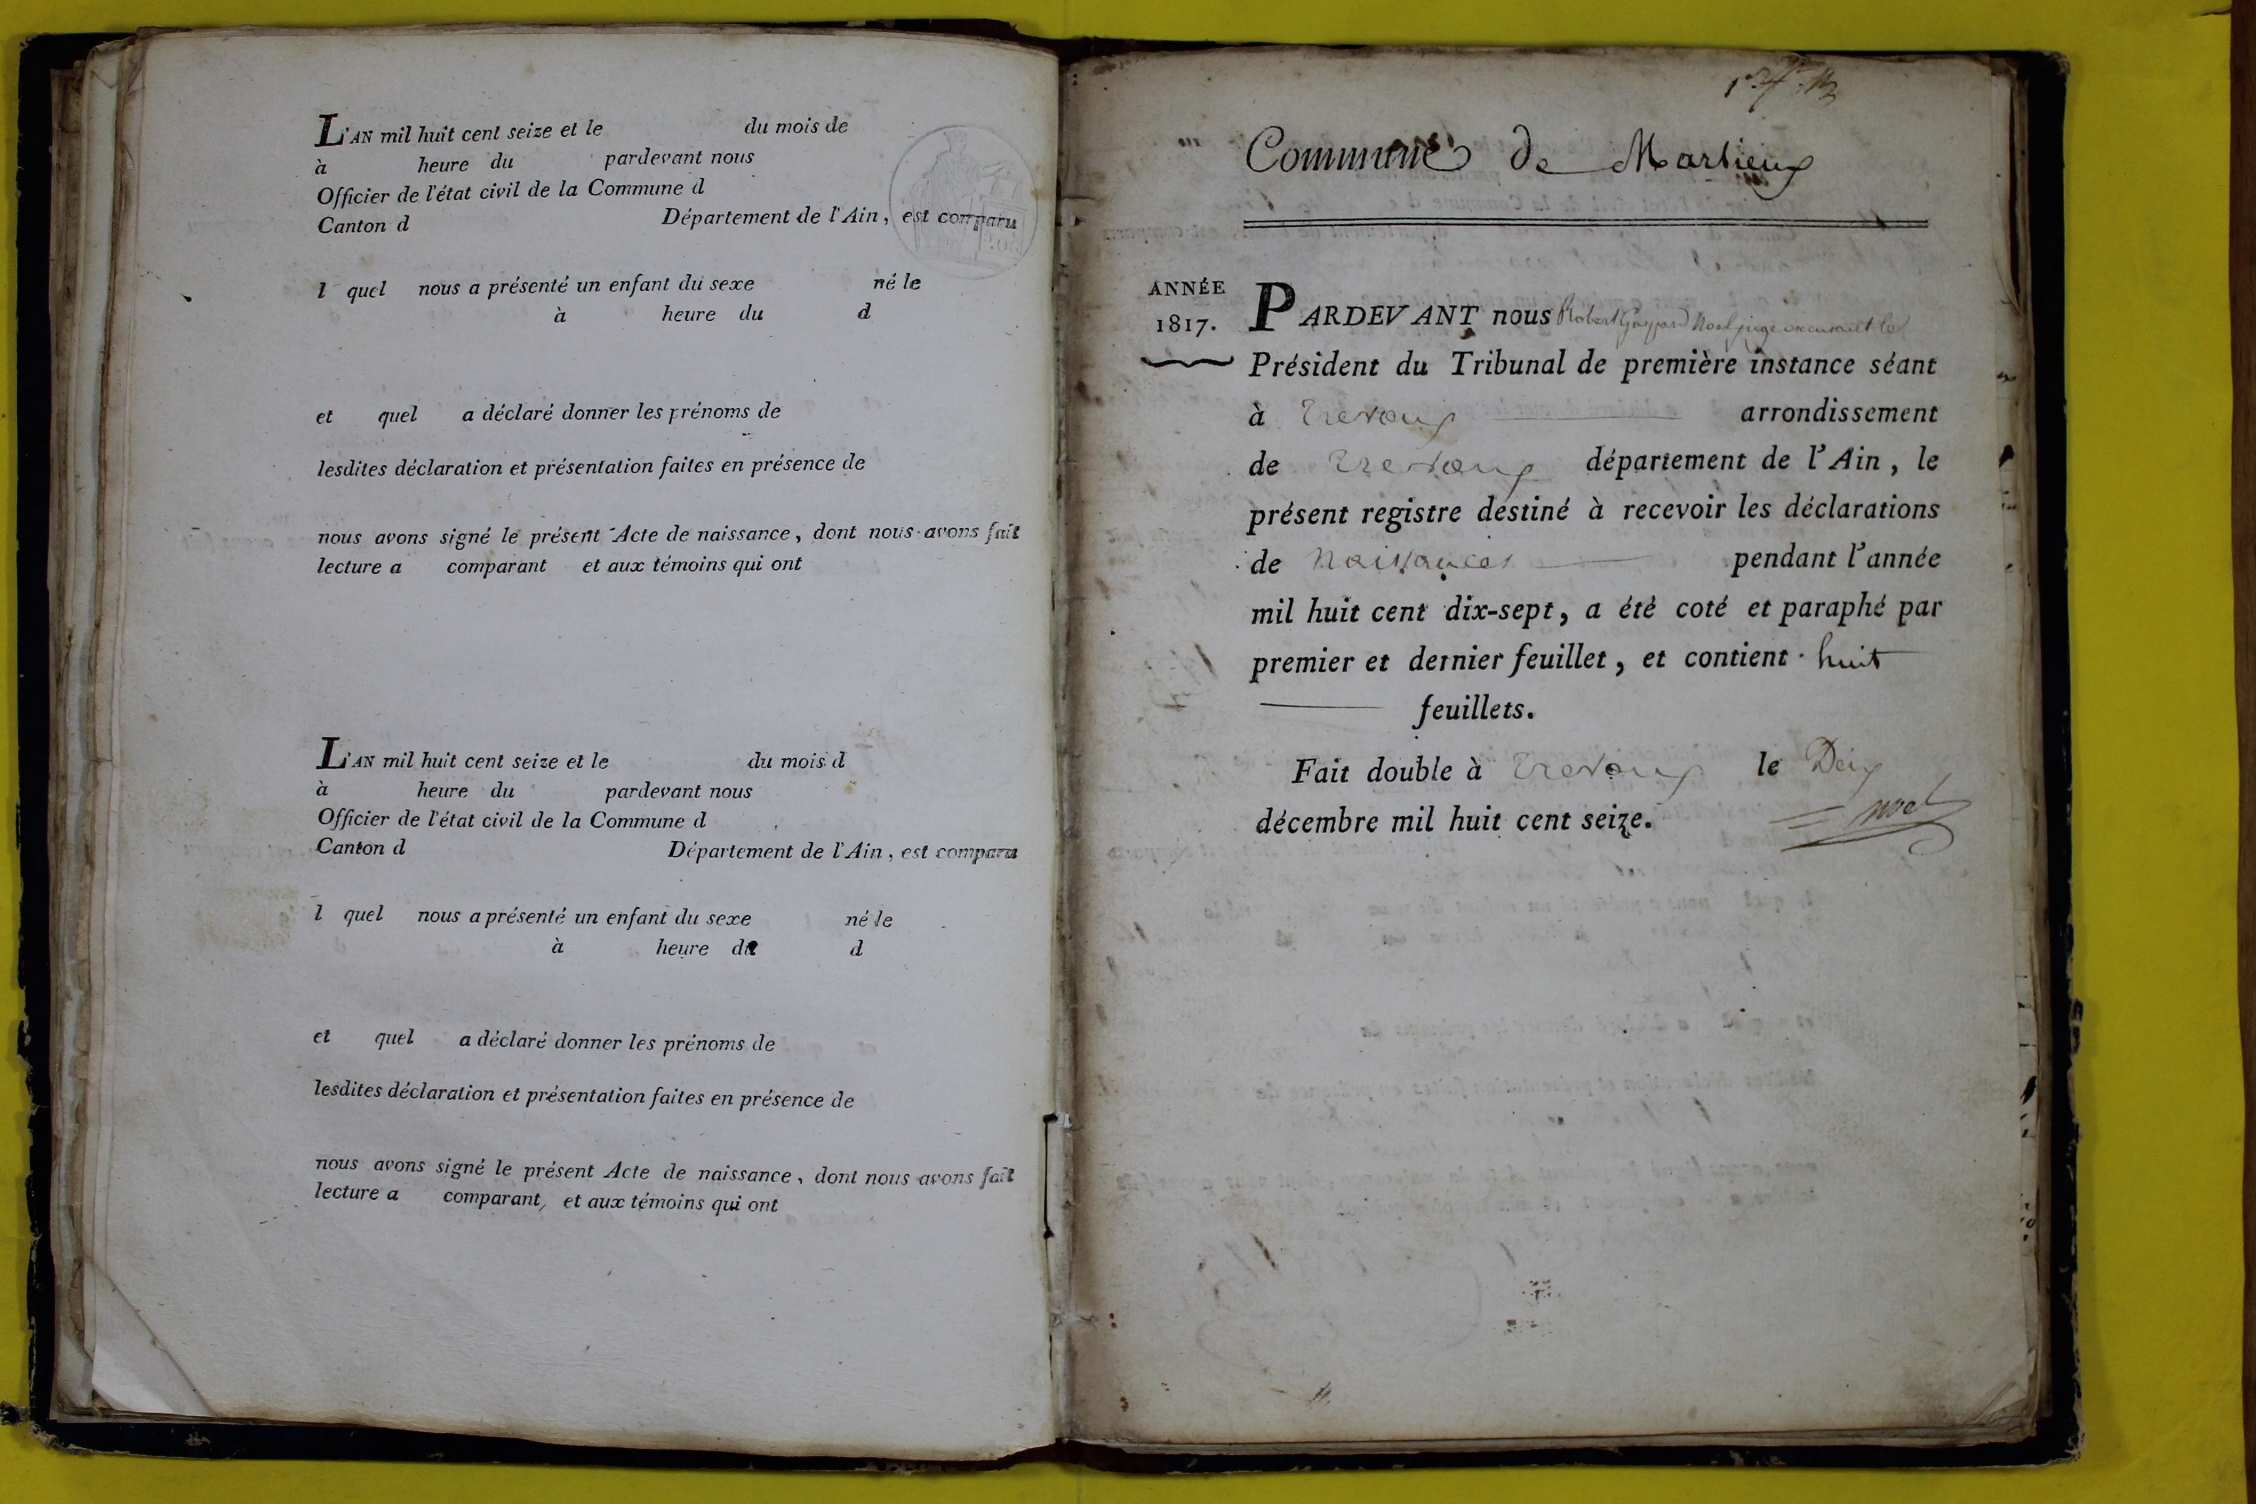 L'AN mil huit cent seize et le du mois de
à heure du pardevant nous
Officier de l'état civil de la Commune d
Canton d Département de l'Ain, est comparu
l quel nous a présenté un enfant du sexe né le
à heure du d
et quel a déclaré donner les prénoms de
lesdites déclaration et présentation faites en présence de
nous avons signé le présent Acte de naissance, dont nous avons fait
lecture a comparant et aux témoins qui ont
L'AN mil huit cent seize et le du mois d
à heure du pardevant nous
Officier de l'état civil de la Commune d
Canton d Département de l'Ain, est comparu
l quel nous a présenté un enfant du sexe né le
à heure du d
et quel a déclaré donner les prénoms de
lesdites déclaration et présentation faites en présence de
nous avons signé le présent Acte de naissance, dont nous avons fait
lecture a comparant, et aux témoins qui ont
Commune de Marlieux
ANNÉE
1817.
PARDEVANT nous Robert Gaspard Noel juge
Président du Tribunal de première instance séant
à Trevoux arrondissement
de Trevoux département de l'Ain, le
présent registre destiné à recevoir les déclarations
de Naissances pendant l'année
mil huit cent dix-sept, a été coté et paraphé par
premier et dernier feuillet, et contient huit
feuillets.
Fait double à Trevoux le Deux
décembre mil huit cent seize.
Noel